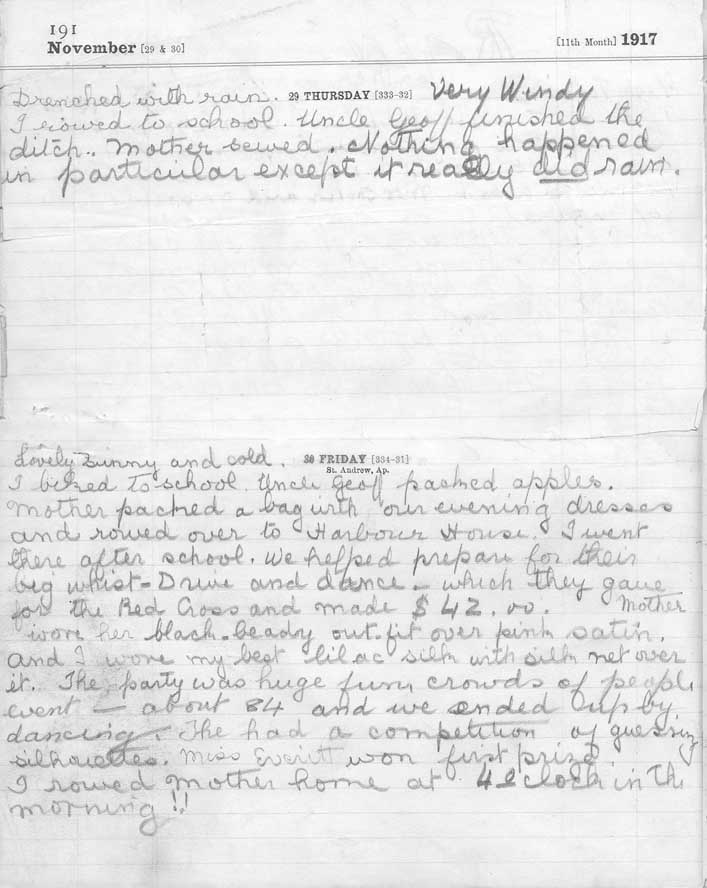 191
November [29 & 30] [11th Month] 1917
Drenched with rain. 29 THURSDAY [333-32] Very Windy
I rowed to school. Uncle Geoff finished the
ditch. Mother sewed. Nothing happened
in particular except it really did rain.
Lovely Sunny and cold. 30 FRIDAY [334-31]
St. Andrew, Ap.
I biked to school. Uncle Geoff packed apples.
Mother packed a bag with our evening dresses
and rowed over to Harbour House. I went
there after school. We helped prepare for their
big whist-Drive and dance - which they gave
for the Red Cross and made $42.00. Mother
wore her black beady outfit over pink satin,
and I wore my best lilac silk with silk net over
it. The party was huge fun, crowds of people
went — about 84 and we ended up by
dancing. The had a competition of guessing
silhouettes. Miss Everitt won first prize.
I rowed Mother home at 4 oclock in the
morning!!